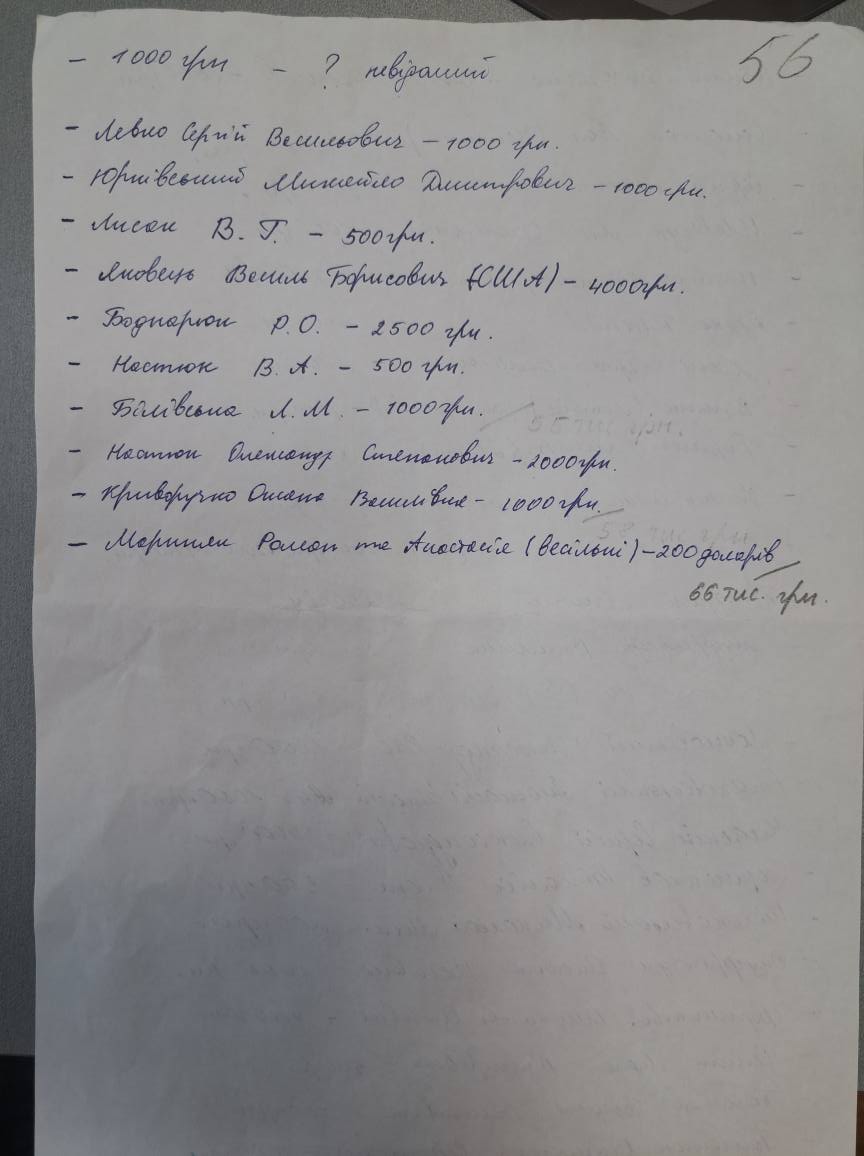 56
- 1000 грн - ? невідомий
- Левко Сергій Васильович - 1000 грн.
- Юрківський Михайло Дмитрович - 1000грн.
- Лисак В. Г. - 500грн.
- Яковець Василь Борисович (США) - 4000грн.
- Боднарюк Р.О. - 2500 грн.
- Настюк В.А. - 500 грн.
- Білівська Л.М. - 1000грн.
- Настюк Олександр Степанович - 2000грн.
- Криворучко Оксана Василівна - 1000 грн.
- Мариняк Роман та Анастасія (весільні) - 200 доларів
66 тис. грн.